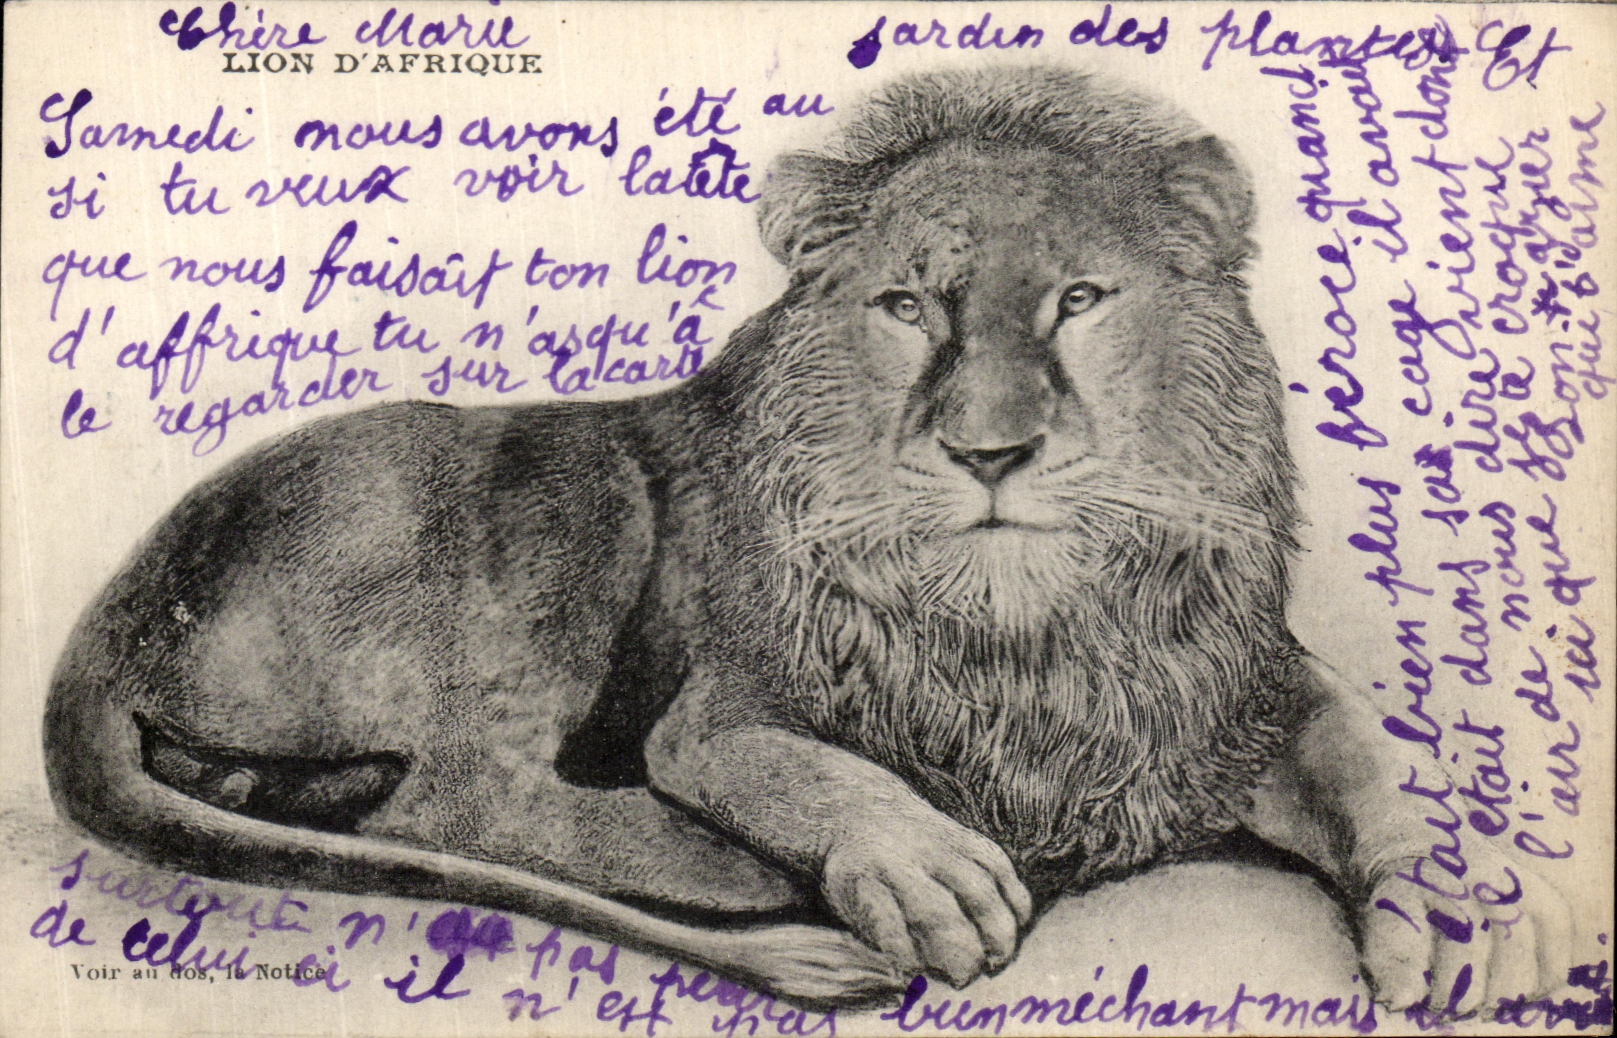 Chère Marie
LION D'AFRIQUE
Samedi nous avons été au
jardin des plantes Et
si tu veux voir la tête
que nous faisait ton lion
d'affrique tu n'as qu'à
le regarder sur la carte
surtout n'ai pas peur
de celui ci il n'est pas bien méchant mais il
était bien plus féroce quand il avait
il était dans sa cage il
l'air de nous dire viens dont
ici que je te croque
Ton
qui t'aime
Voir au dos, la Notice